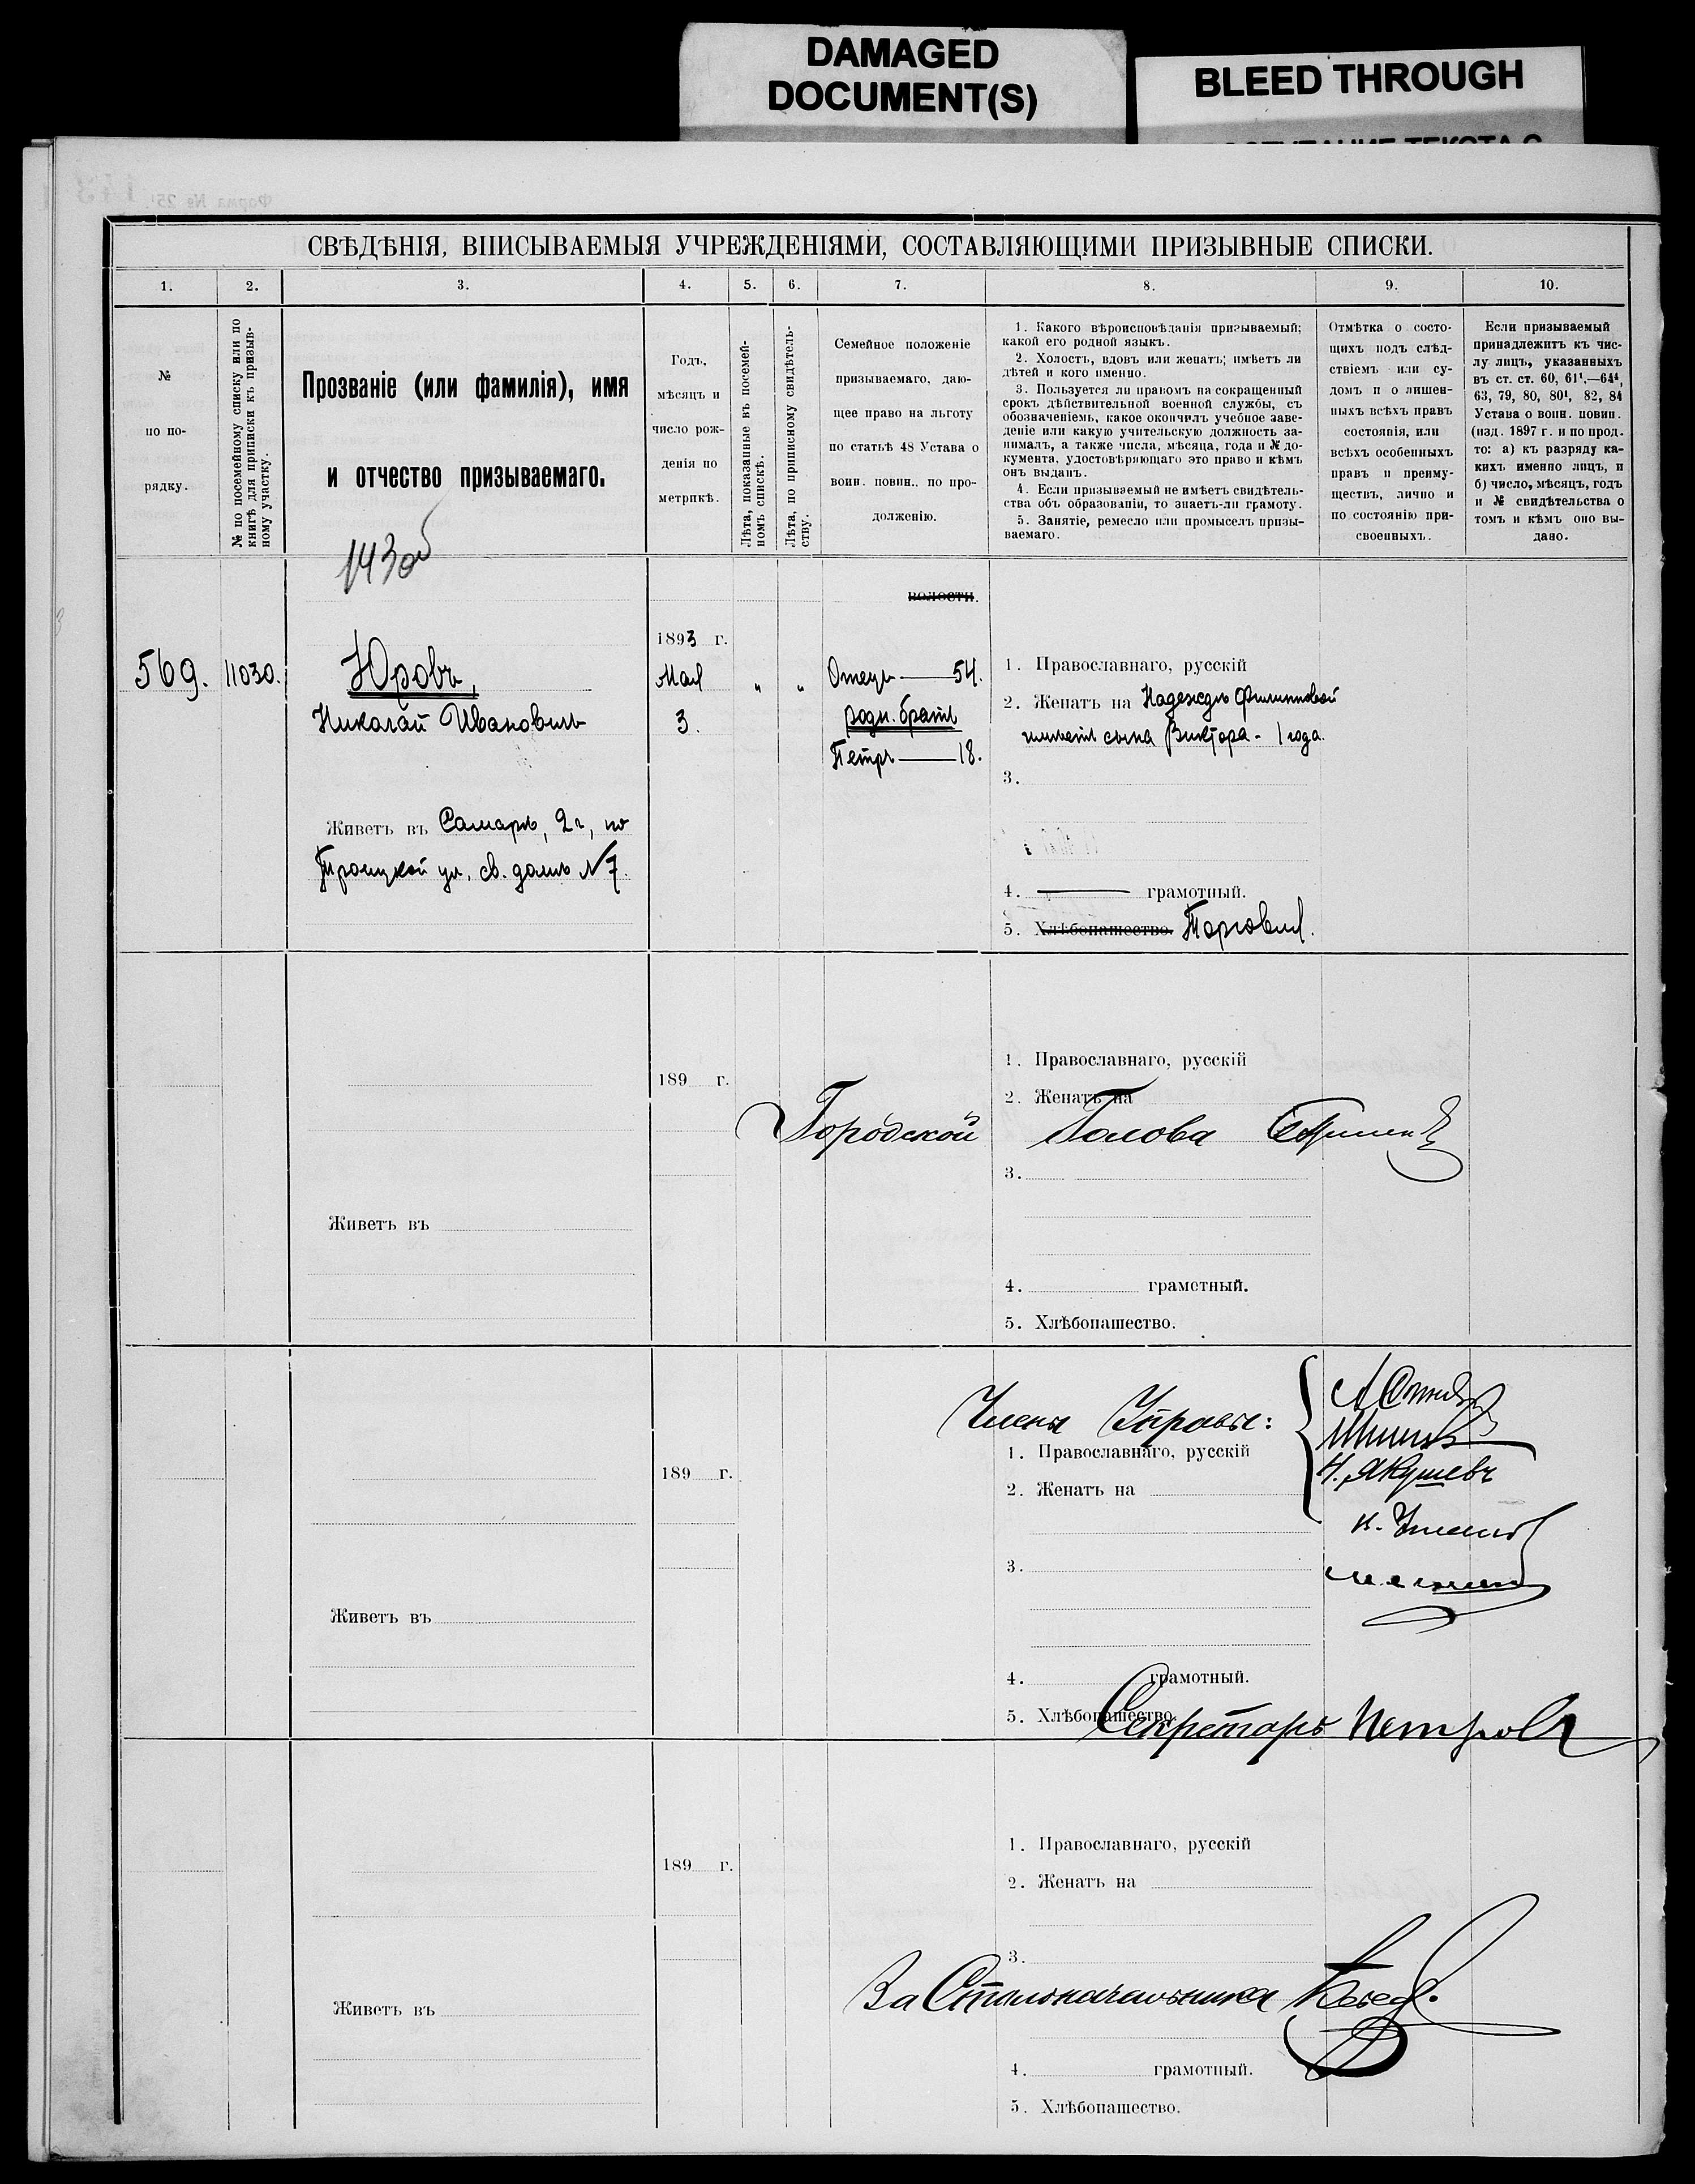 DAMAGED
DOCUMENT(S)
BLEED THROUGH
СВѢДѢНІЯ, ВПИСЫВАЕМЫЯ УЧРЕЖДЕНІЯМИ, СОСТАВЛЯЮЩИМИ ПРИЗЫВНЫЕ СПИСКИ.
1. 2. 3. 4. 5. 6. 7. 8. 9. 10.
№
по по-
рядку.
№ по посемейному списку или по
книгѣ для приписки къ призыв-
ному участку.
Прозваніе (или фамилія), имя
и отчество призываемаго.
Годъ,
мѣсяцъ и
число рож-
денія по
метрикѣ.
Лѣта, показанные въ посемей-
номъ спискѣ.
Лѣта, по приписному свидѣтель-
ству.
Семейное положеніе
призываемаго, даю-
щее право на льготу
по статьѣ 48 Устава о
воин. повин.. по про-
долженію.
1. Какого вѣроисповѣданія призываемый;
какой его родной языкъ.
2. Холостъ, вдовъ или женатъ; имѣетъ ли
дѣтей и кого именно.
3. Пользуется ли правомъ на сокращенный
срокъ дѣйствительной военной службы, съ
обозначеніемъ, какое окончилъ учебное заве-
деніе или какую учительскую должность за-
нималъ, а также числа, мѣсяца, года и № до-
кумента, удостовѣряющаго это право и кѣмъ
онъ выданъ.
4. Если призываемый не имѣетъ свидѣтель-
ства объ образованіи, то знаетъ-ли грамоту.
5. Занятіе, ремесло или промыселъ призы-
ваемаго.
Отмѣтка о состо-
щихъ подъ слѣд-
ствіемъ или су-
домъ п о лишен-
ныхъ всѣхъ правъ
состоянія, или
всѣхъ особенныхъ
правъ и преиму-
ществъ, лично и
по состоянію при-
своенныхъ.
Если призываемый
принадлежитъ къ чис-
лу лицъ, указанныхъ
въ ст. ст. 60, 61¹,—64⁴,
63, 79, 80, 80¹, 82, 84
Устава о воин. повин.
(изд. 1897 г. и по прод.
то: а) къ разряду ка-
кихъ именно лицъ, и
б) число, мѣсяцъ, годъ
и № свидѣтельства о
томъ и кѣмъ оно вы-
дано.
143об
волости.
569. 11030.
Юровъ,
Николай Ивановичъ
Живетъ въ Самарѣ, 2ч, по
Троицкой ул. св. домъ №7.
1893 г.
Мая
3.
" "
Отецъ — 54.
родн. братъ
Петръ — 18.
1. Православнаго, русскій
2. Женатъ на Надеждѣ Филипповой
имѣетъ сына Виктора - 1 года.
3.
4. — грамотный.
5. Хлѣбопашество. Торговля.
189 г.
Живетъ въ
1. Православнаго, русскій
2. Женатъ на
Городской Голова
3.
4. грамотный.
5. Хлѣбопашество.
Члены Управы:
189 г.
Живетъ въ
1. Православнаго, русскій
2. Женатъ на
Н. Якушевъ
3.
4. грамотный.
5. Хлѣбопашество.
Секретарь Петровъ
189 г.
Живетъ въ
1. Православнаго, русскій
2. Женатъ на
3.
За Столоначальника
4. грамотный.
5. Хлѣбопашество.